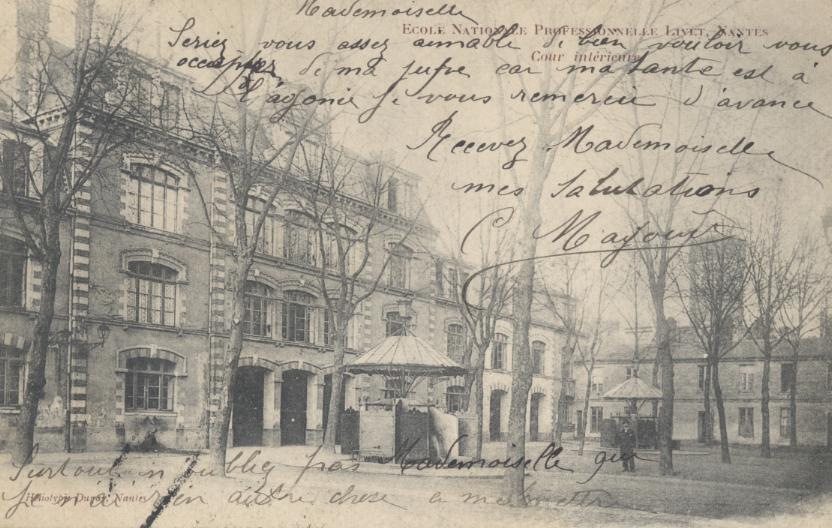 Mademoiselle
ECOLE NATIONALE PROFESSIONNELLE LIVET, NANTES
Cour intérieure
Seriez vous assez aimable de bien vouloir vous
occupper de ma jupe car ma tante est à
l'agonie je vous remercie d'avance
Recevez Mademoiselle
mes Salutations
Surtout n oubliez pas Mademoiselle que
je n'ai rien autre chose a me mettre
Héliotypie Dugas, Nantes